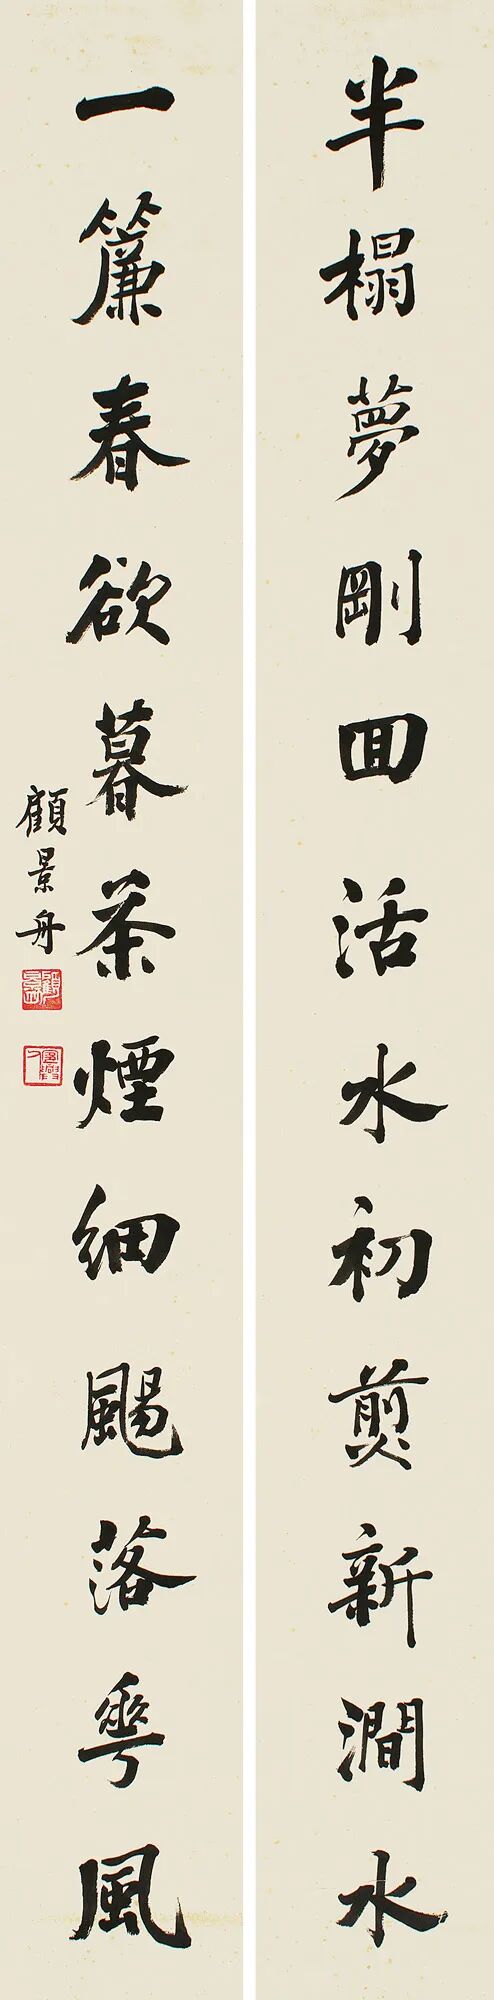 半榻夢剛囬活水初煎新澗水
一簾春欲暮茶煙細颺落華風
顧景舟